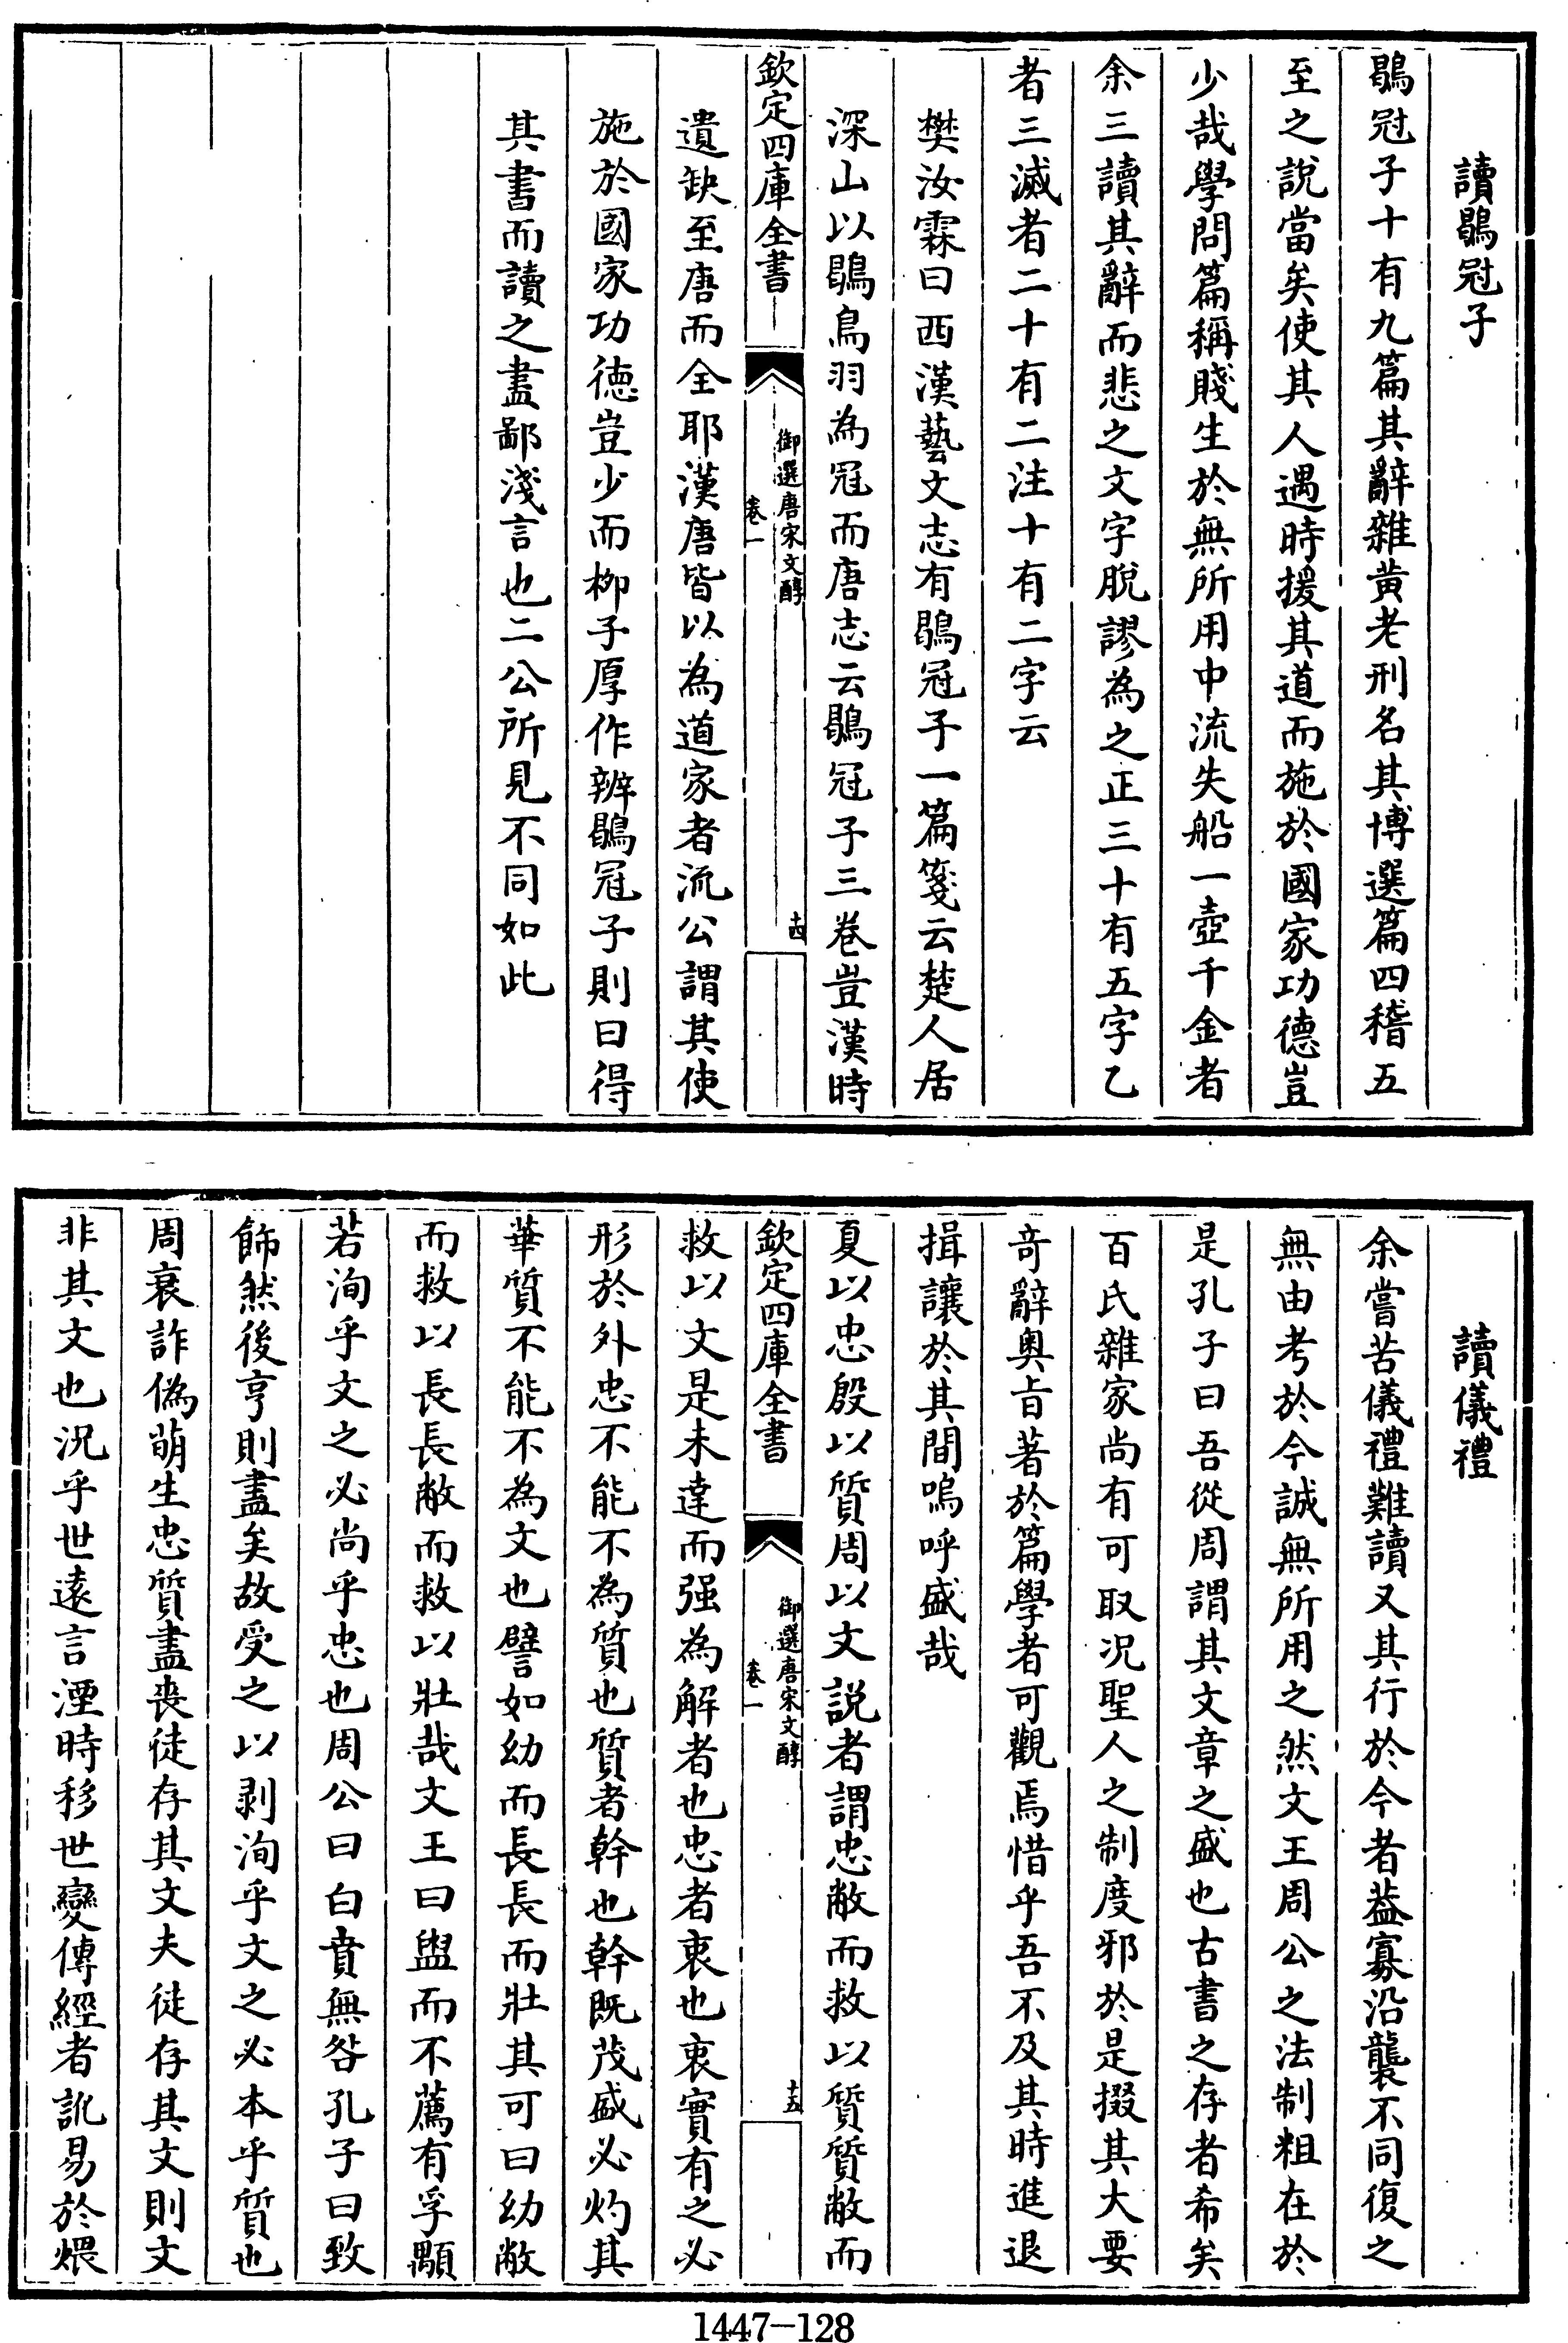 讀鶡冠子
鶡冠子十有九篇其辭雜黄老刑名其博選篇四稽五
至之說當矣使其人遇時援其道而施於國家功德豈
少哉學問篇稱賤生於無所用中流失船一壺千金者
余三讀其辭而悲之文字脫謬為之正三十有五字乙
者三滅者二十有二注十有二字云
樊汝霖曰西漢藝文志有鶡冠子一篇箋云楚人居
深山以鶡鳥羽為冠而唐志云鶡冠子三卷豈漢時
欽定四庫全書
御選唐宋文醇
卷一
十四
遺缺至唐而全耶漢唐皆以為道家者流公謂其使
施於國家功德豈少而栁子厚作辨鶡冠子則曰得
其書而讀之盡鄙淺言也二公所見不同如此
讀儀禮
余嘗苦儀禮難讀又其行於今者葢寡沿襲不同復之
無由考於今誠無所用之然文王周公之法制粗在於
是孔子曰吾從周謂其文章之盛也古書之存者希矣
百氏雜家尚有可取况聖人之制度邪於是掇其大要
竒辭奥旨著於篇學者可觀焉惜乎吾不及其時進退
揖讓於其間嗚呼盛哉
夏以忠殷以質周以文説者謂忠敝而救以質質敝而
欽定四庫全書
御選唐宋文醇
卷一
十五
救以文是未達而强為解者也忠者衷也衷實有之必
形於外忠不能不為質也質者幹也幹既茂盛必灼其
華質不能不為文也譬如幼而長長而壯其可曰幼敝
而救以長長敝而救以壯哉文王曰盥而不薦有孚顒
若洵乎文之必尚乎忠也周公曰白賁無咎孔子曰致
飾然後亨則盡矣故受之以剥洵乎文之必本乎質也
周衰詐偽萌生忠質盡喪徒存其文夫徒存其文則文
非其文也況乎世遠言湮時移世變傳經者訛易於煨
1447-128